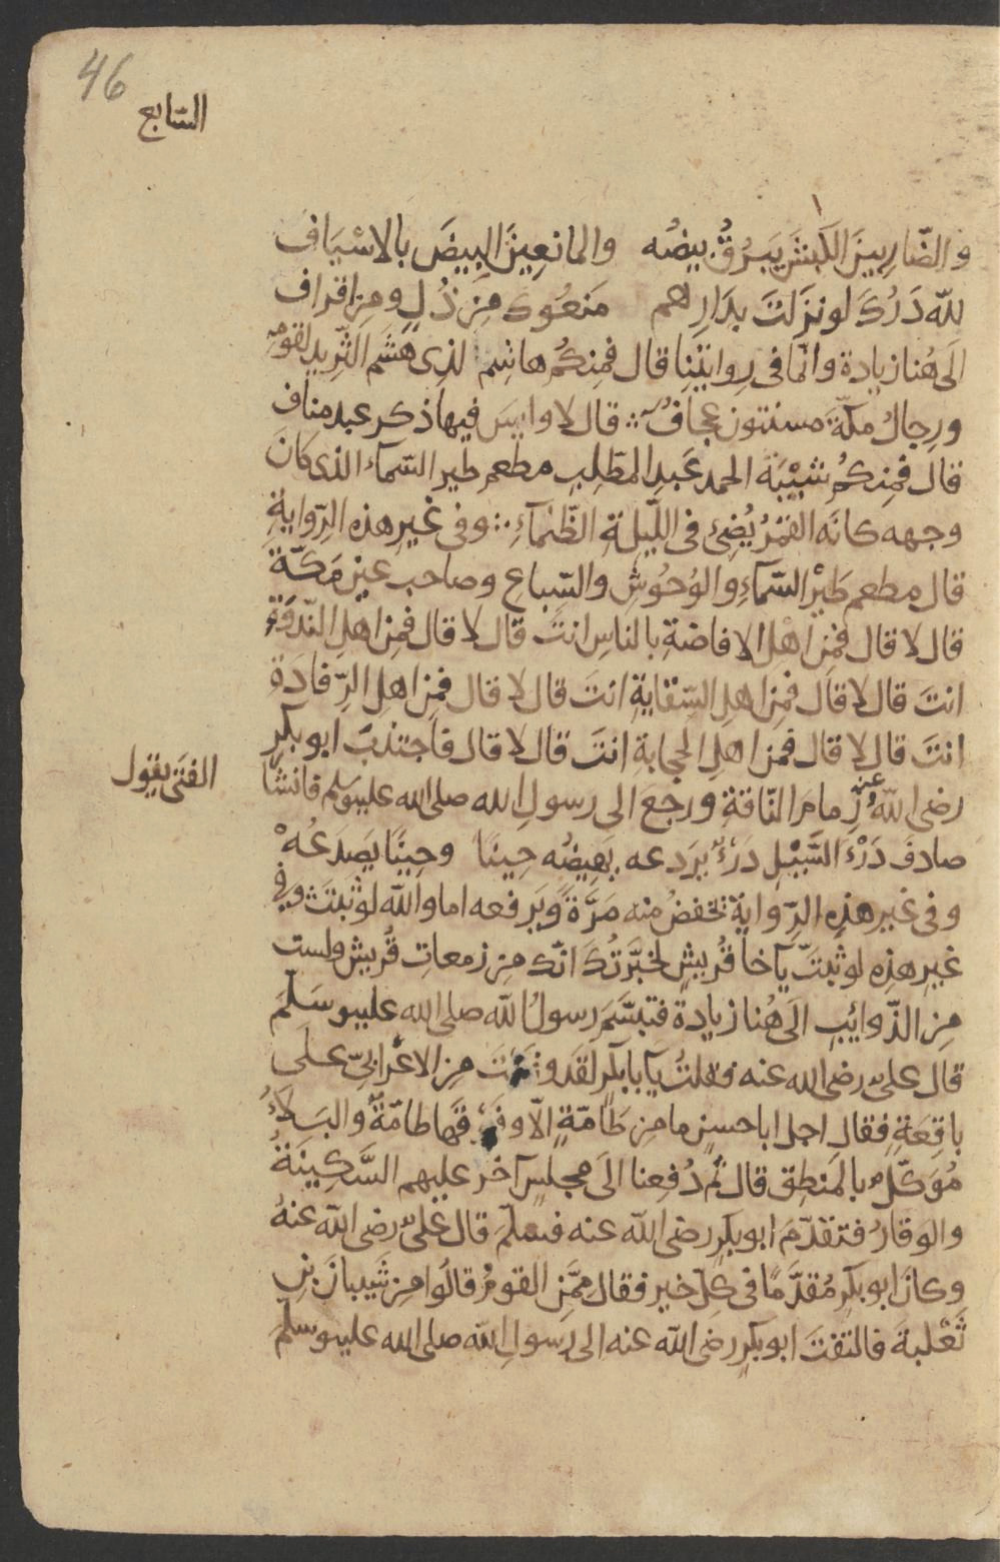 46
السّابع
والضّاربينَ الكَبشَ يَبرُقُ بيضُه والمانعِينَ البِيضَ بالاسْيَافَ
للّه دَرُكَ لو نزَلتَ بدَارِهم مَنعُوكَ مِن ذُلٍ ومِن اقراف
الَى هُنا زيادة وانّما فى رِوايتِنا قال فمِنكُم هاشِم الذِى هَشَم الثّرِيد لقومِه
ورِجالُ مكّةَ مسنتون عِجَافُ ∴ قال لا وليسَ فيها ذكر عبد مناف
قال فمِنكُم شَيْبَة الحمد عَبدِ المطّلِبِ مطعم طير السّمآء الذى كانَ
وجهه كانَه القمَرُ يُضِئُ فى اللّيلةِ الظّلمآءِ ∴ وفى غيرِ هذه الرّوايةِ
قال مطعم طَيْر السّمآءِ والوُحُوشِ والسّباع وصاحب عِيرِ مَكّةَ
قال لا قال فمِن اهْل الافاضةِ بالناسِ انتَ قال لا قال فمِن اهلِ النّدوَةِ
انتَ قال لا قال فمِن اهلِ السّقايةِ انتَ قال لا قال فمِن اهلِ الرِّفادَة
انتَ قال لا قال فمِن اهلِ الحجابةِ انتَ قال لا قال فاجتذبَ ابو بكرٍ
رضى اللّه عنه زِمامَ النّاقةِ ورجعَ الى رسولِ الله صلى الله عليه وسلم فانشأ
الفتَى يقول
صادفَ دَرْءَ السَّيْلِ دَرْءٌ يَردعه يهِيضُه حِينًا وحِينًا يَصدَعُهْ
وفى غير هذِه الرّواية تخفضُ منه مَرَّةً ويَرفعه اما والله لو ثبتَ وفى
غيرِ هذِه لو ثبتَّ يآ خا قُريشٍ لخبَّرتُكَ انّك مِن زمعاتِ قُريشٍ ولست
مِن الذّوائِبِ الَى هُنا زيادة فتبسَّمَ رسولُ اللّه صلى الله عليه وسَلّمَ
قال علىّ رضى الله عنه فقلتُ يآ بابكرٍ لقَد وقعْتَ مِن الاعرابىّ علَى
باقِعَةٍ فقال اجل اباحسنٍ ما مِن طَآمّةٍ الاّ وفَوقَها طامّةٌ والبَلآءُ
مُوَكّلٌ بالمَنطِق قال ثم دُفِعنا الَى مجلسٍ آخر عليهم السَّكِينَةُ
والوقارُ فتقدّمَ ابو بكرٍ رضى اللّه عنه فسلّمَ قال علىّ رضى اللّه عنهُ
وكانَ ابو بكرٍ مُقدَّمًا فى كلّ خير فقال ممَّن القومُ قالُوا مِن شَيبانَ بنِ
ثَعْلبةَ فالتفتَ ابو بكرٍ رضَى اللّه عنه الى رسولِ اللّه صلى الله عليه وسلّمَ